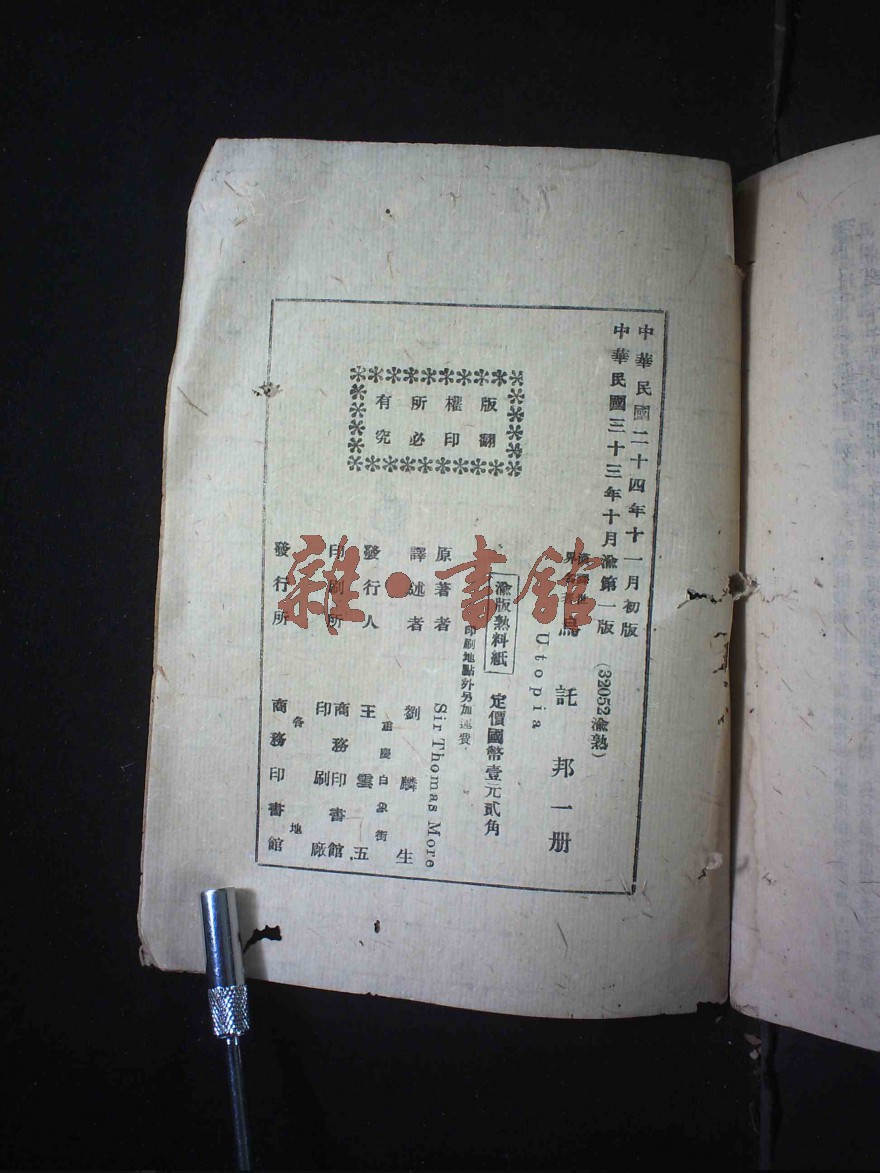 中華民國二十四年十一月初版
中華民國三十三年十月渝第一版
(32052渝熟)
烏託邦一册
Utopia
渝版熟料紙
定價國幣壹元貳角
印刷地點外另加運費
原著者 Sir Thomas More
譯述者 劉麟生
發行人 王雲五
重慶白象街
印刷所 商務印書館印刷廠
發行所 商務印書館
各地
版權所有
翻印必究
雜·書館